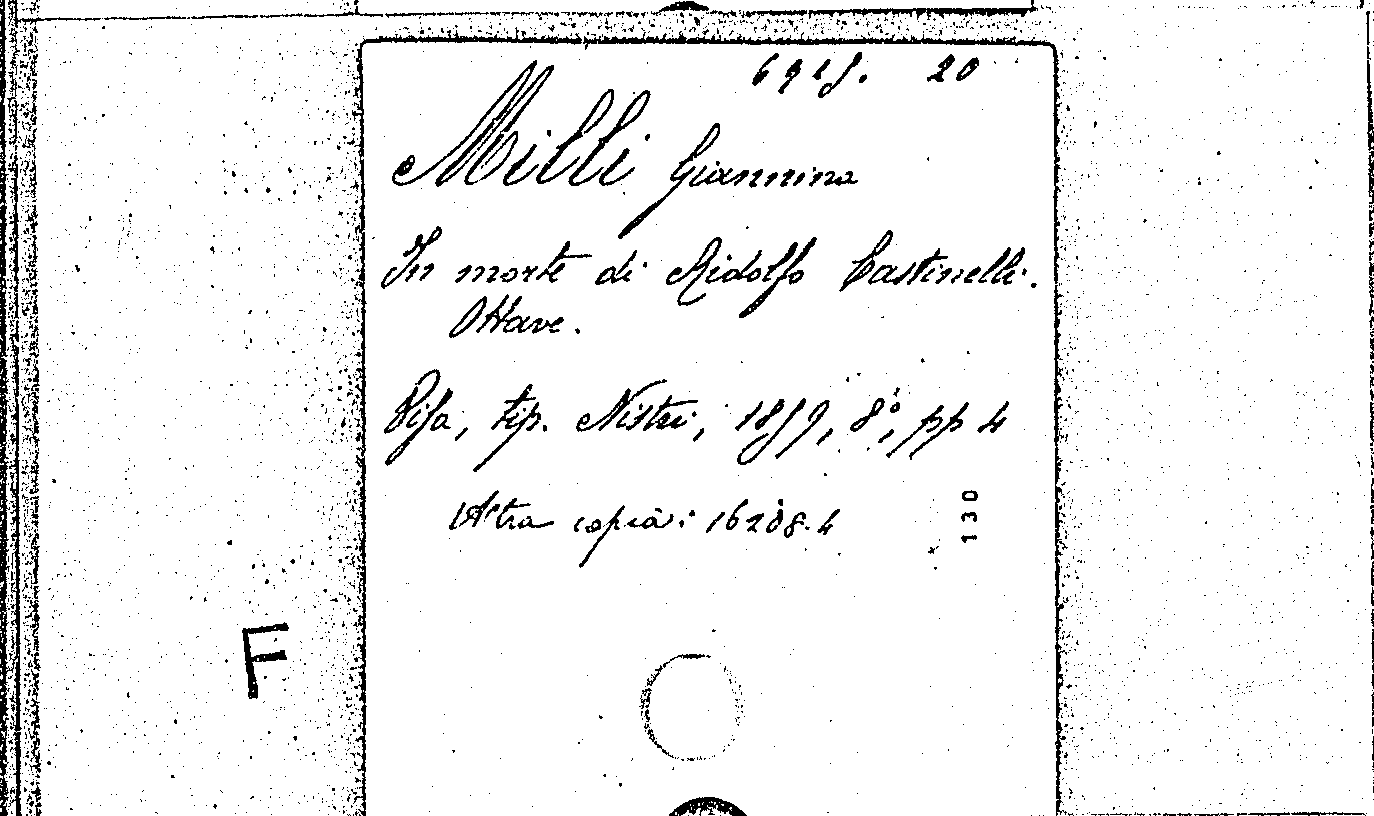 6915. 20
Milli Giannina
In morte di Ridolfo Castinelli.
Ottave.
Pisa, tip. Nistri, 1859, 8°, pp 4
Altra copia: 16208.4
130
F